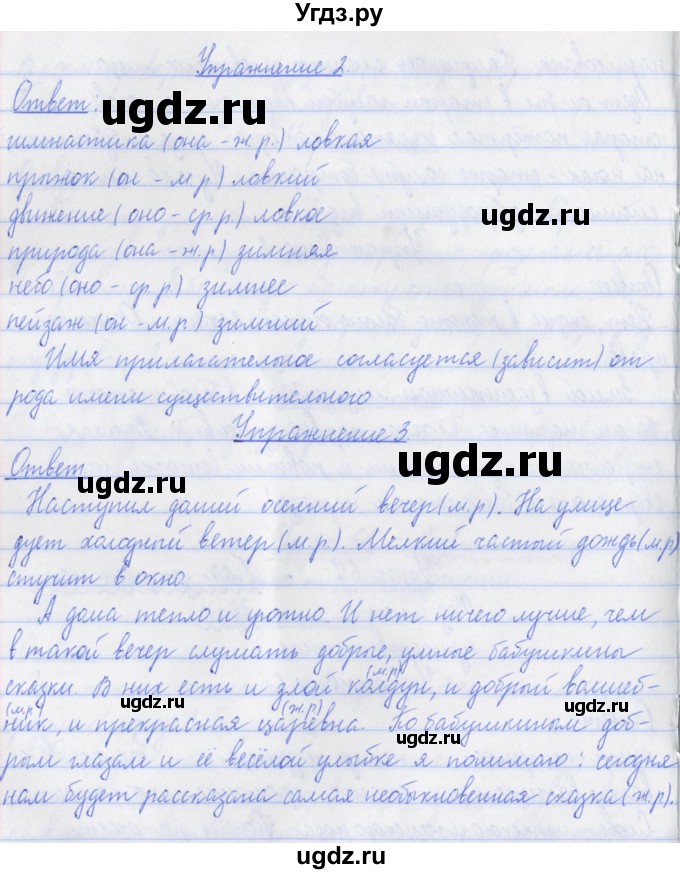 Угдз.ру
Упражнение 2.
Ответ.
ugdz.ru
гимнастика (она - ж.р.) ловкая
прыжок (он - м.р) ловкий
ugdz.ru
движение (оно - ср.р.) ловкое
ugdz.ru
природа (она - ж.р) зимняя
небо (оно - ср.р) зимнее
пейзаж (он - м.р) зимний
Имя прилагательное согласуется (зависит) от
ugdz.ru
рода имени существительного
Упражнение 3.
Ответ.
ugdz.ru
ugdz.ru
Наступил долгий осенний вечер (м.р). На улице
дует холодный ветер (м.р). Мелкий частый дождь (м.р)
стучит в окно.
А дома тепло и уютно. И нет ничего лучше, чем
ugdz.ru
в такой вечер слушать добрые, умные бабушкины
сказки. В них есть и злой колдун (м.р), и добрый волшеб-
ник (м.р), и прекрасная царевна (ж.р). По бабушкиным доб-
ugdz.ru
рым глазам и её весёлой улыбке я понимаю: сегодня
нам будет рассказана самая необыкновенная сказка (ж.р).
ugdz.ru